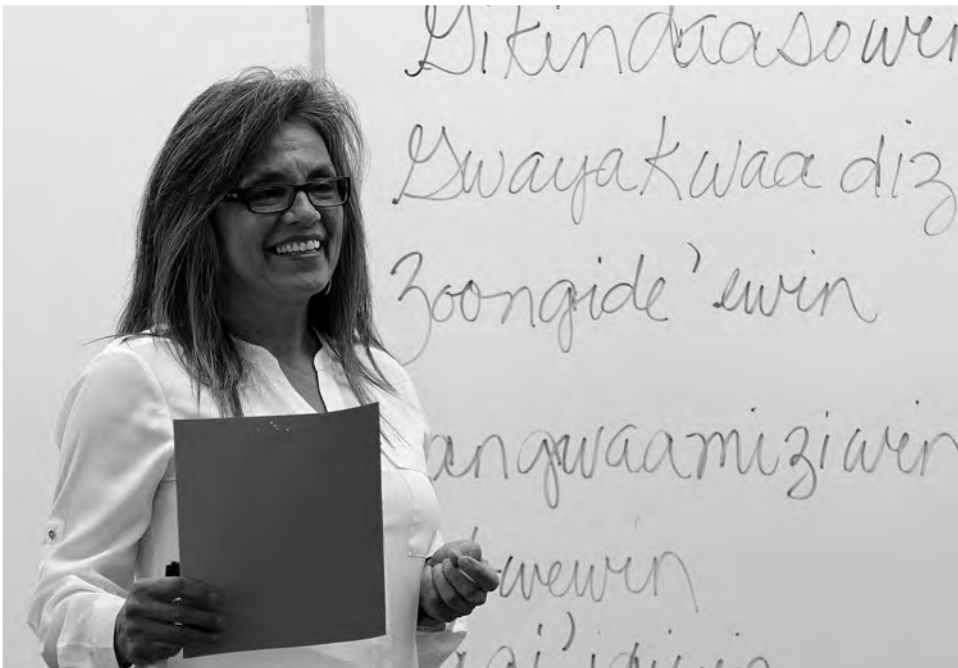 Gikindaasowin
Gwayakwaadiz
Zoongide'ewin
angwaamiziwin
wewin